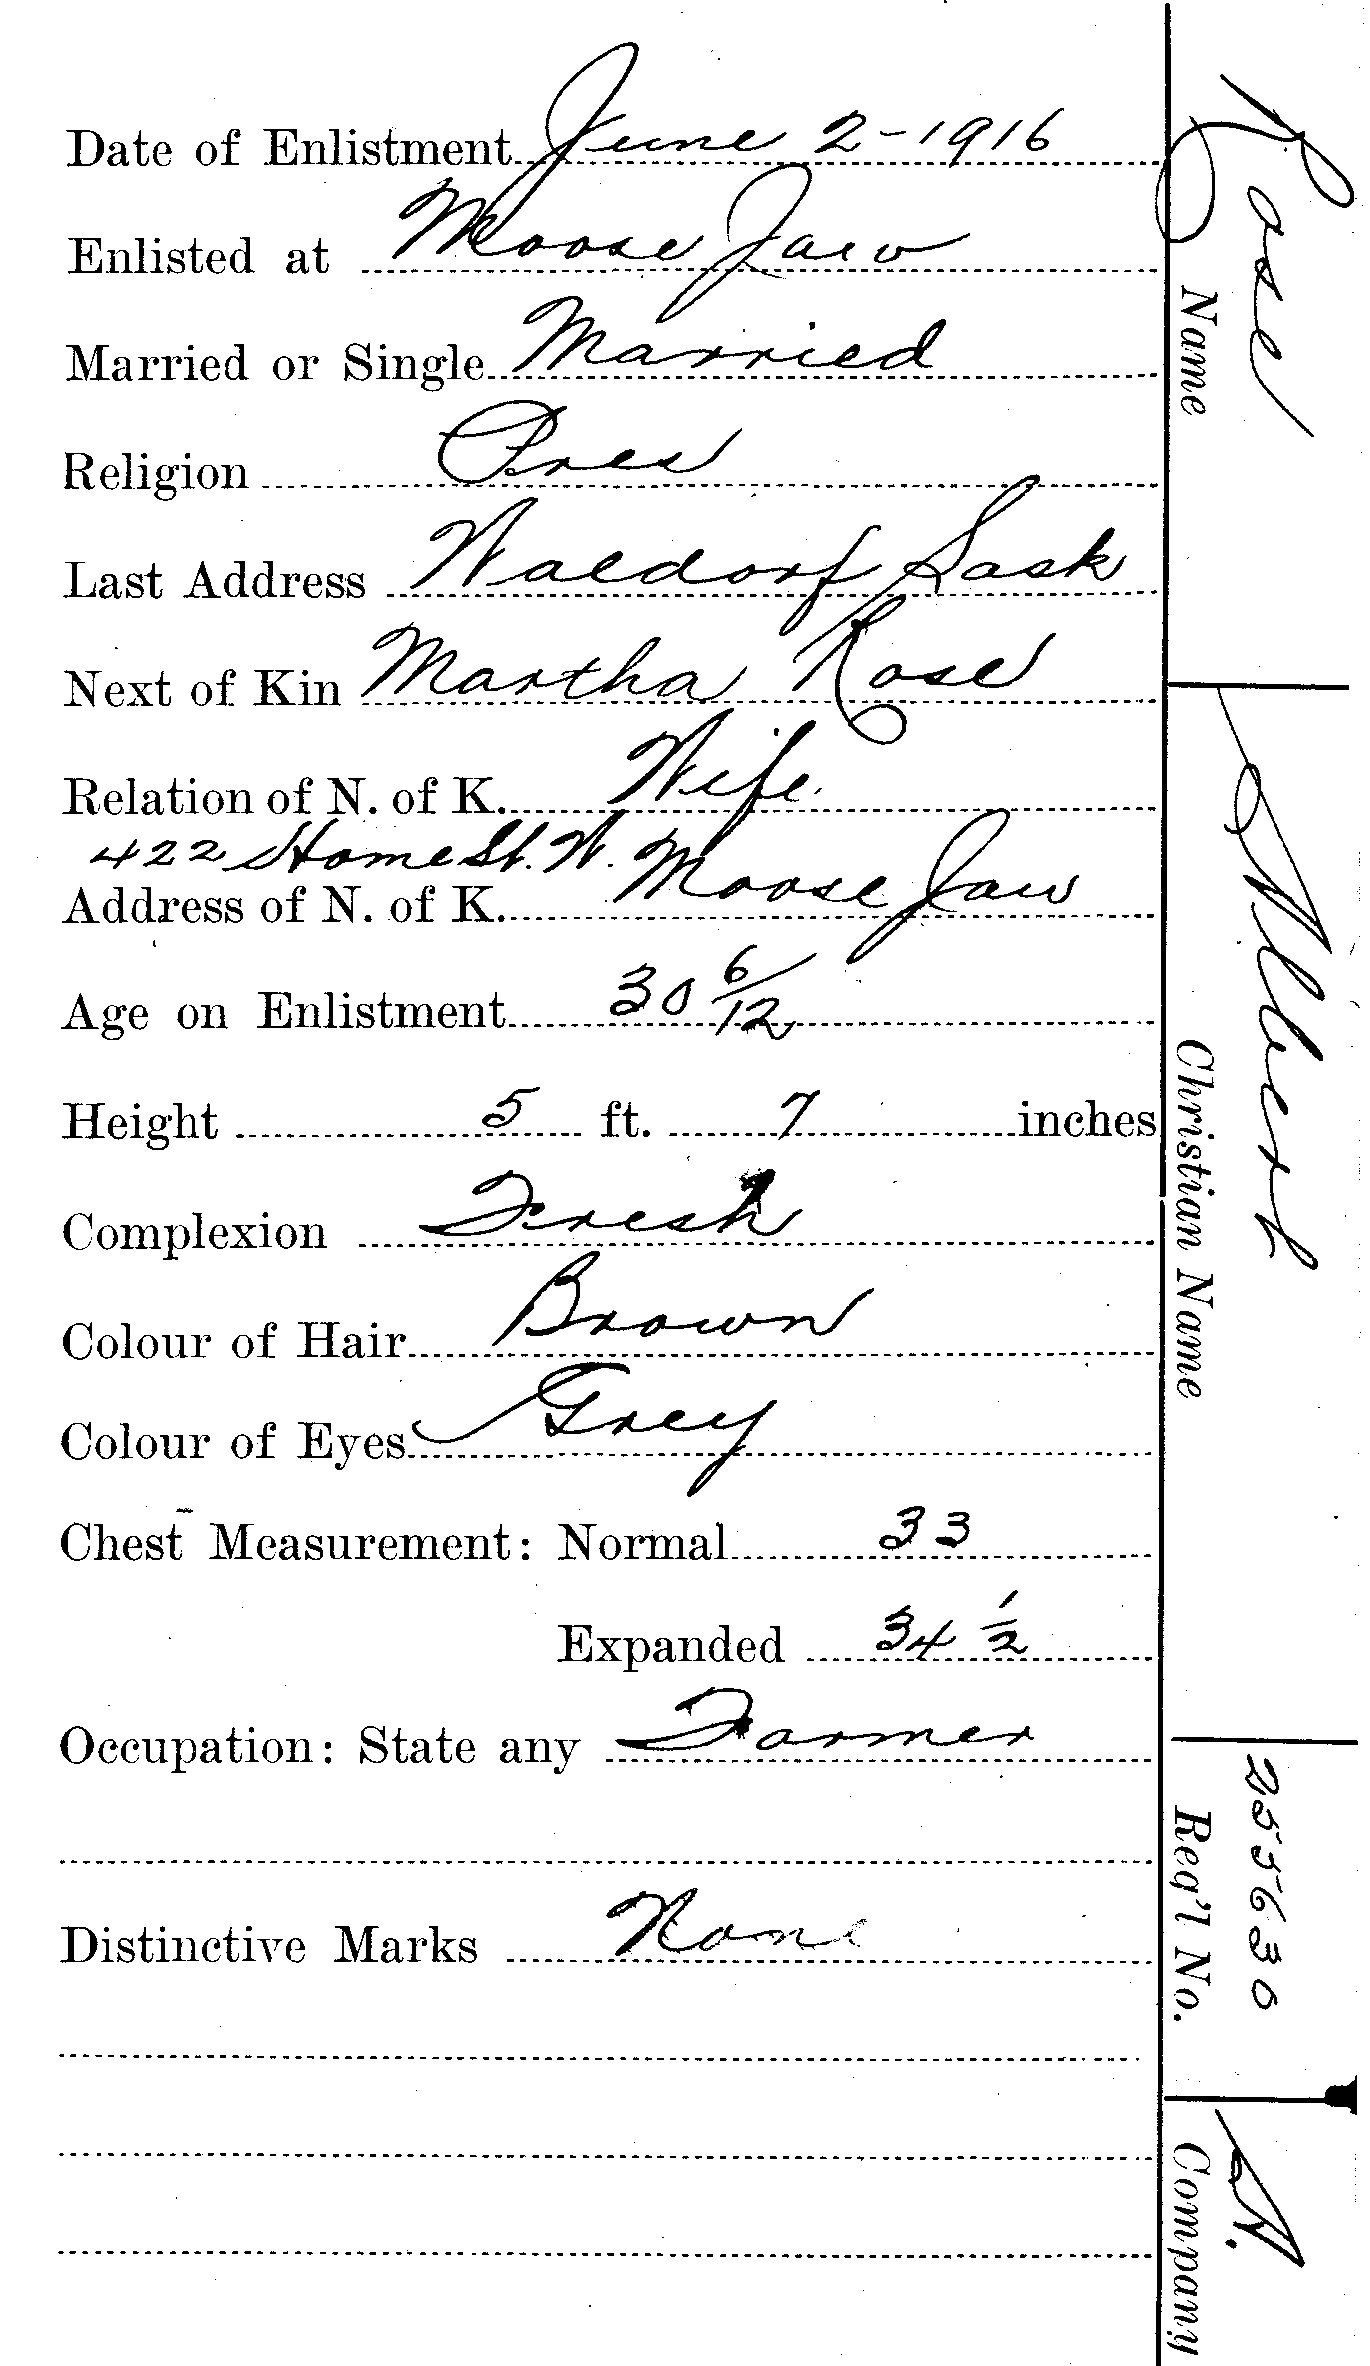 Date of Enlistment June 2-1916
Enlisted at Moose Jaw
Married or Single Married
Religion Pres
Last Address Waldorf Sask
Next of Kin Martha Rose
Relation of N. of K. Wife.
422 Home St. W.
Address of N. of K. Moose Jaw
Age on Enlistment 30 6/12
Height 5 ft. 7 inches
Complexion Fresh
Colour of Hair Brown
Colour of Eyes Grey
Chest Measurement: Normal 33
Expanded 34 1/2
Occupation: State any Farmer
Distinctive Marks None
Rose
Name
Albert
Christian Name
255630
Reg'l No.
A.
Company